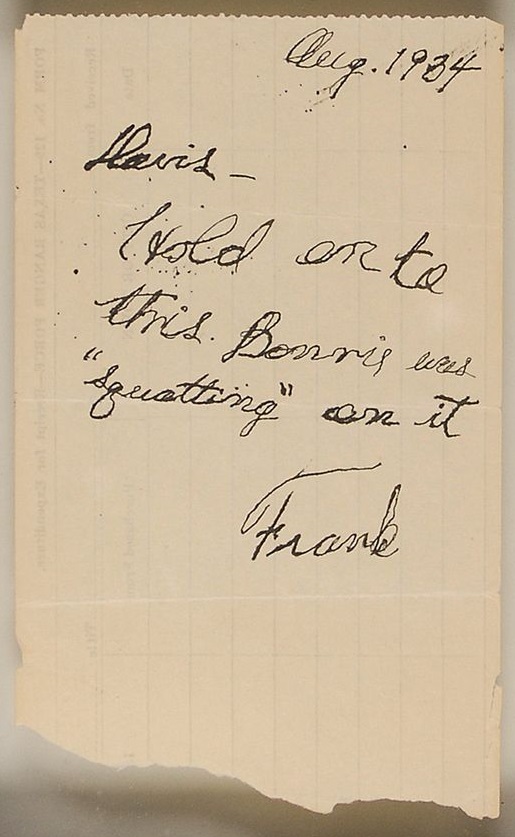 Aug. 1934
Davis—
Hold on to
this. Bonnie was
"squatting" on it
Frank